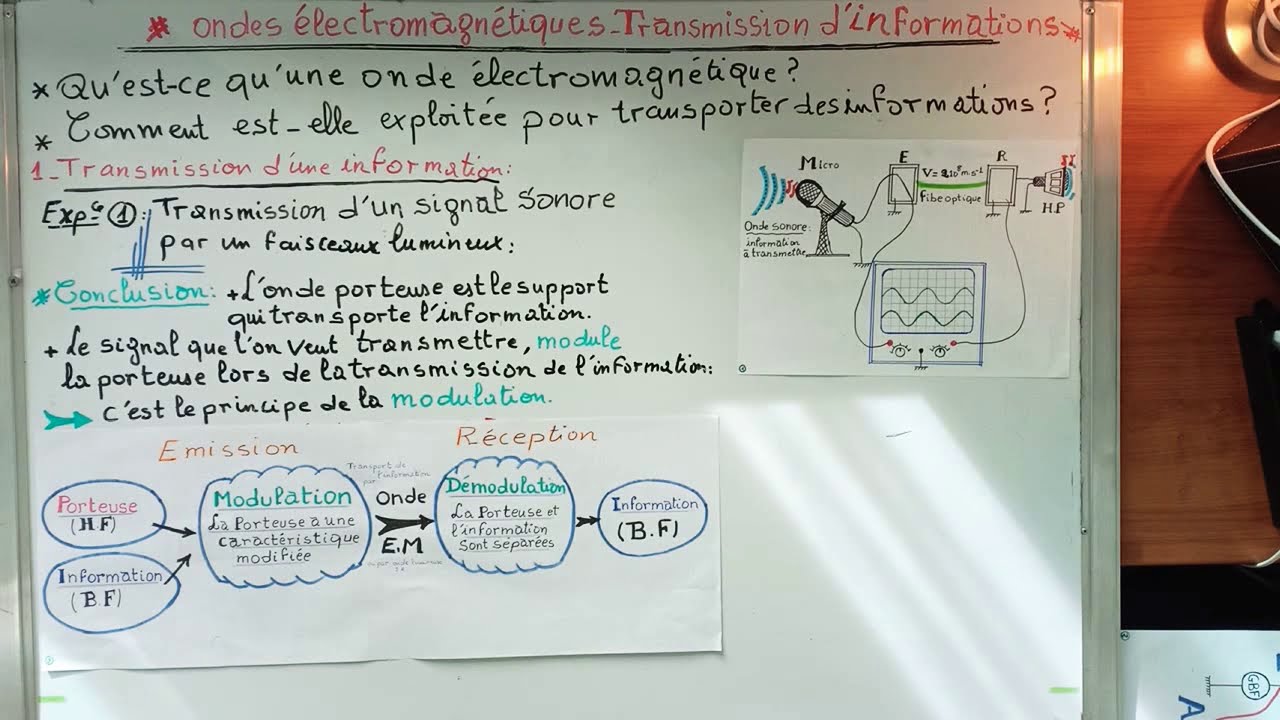 * ondes électromagnétiques_Transmission d'informations *
* Qu'est-ce qu'une onde électromagnétique?
* Comment est-elle exploitée pour transporter des informations?
1_Transmission d'une information:
Expce ①: Transmission d'un signal sonore
par un faisceaux lumineux:
*Conclusion: + L'onde porteuse est le support
qui transporte l'information.
+ Le signal que l'on veut transmettre, module
la porteuse lors de la transmission de l'information:
c'est le principe de la modulation.
Micro
E
R
V=210⁸m.s⁻¹
fibe optique
H.P
Onde sonore:
information
à transmettre
Emission
Réception
Porteuse
(H.F)
Information
(B.F)
Modulation
La Porteuse a une
caractéristique
modifiée
Transport de
l'information
par
Onde
E.M
Démodulation
La Porteuse et
l'information
sont séparées
Information
(B.F)
GBF
A